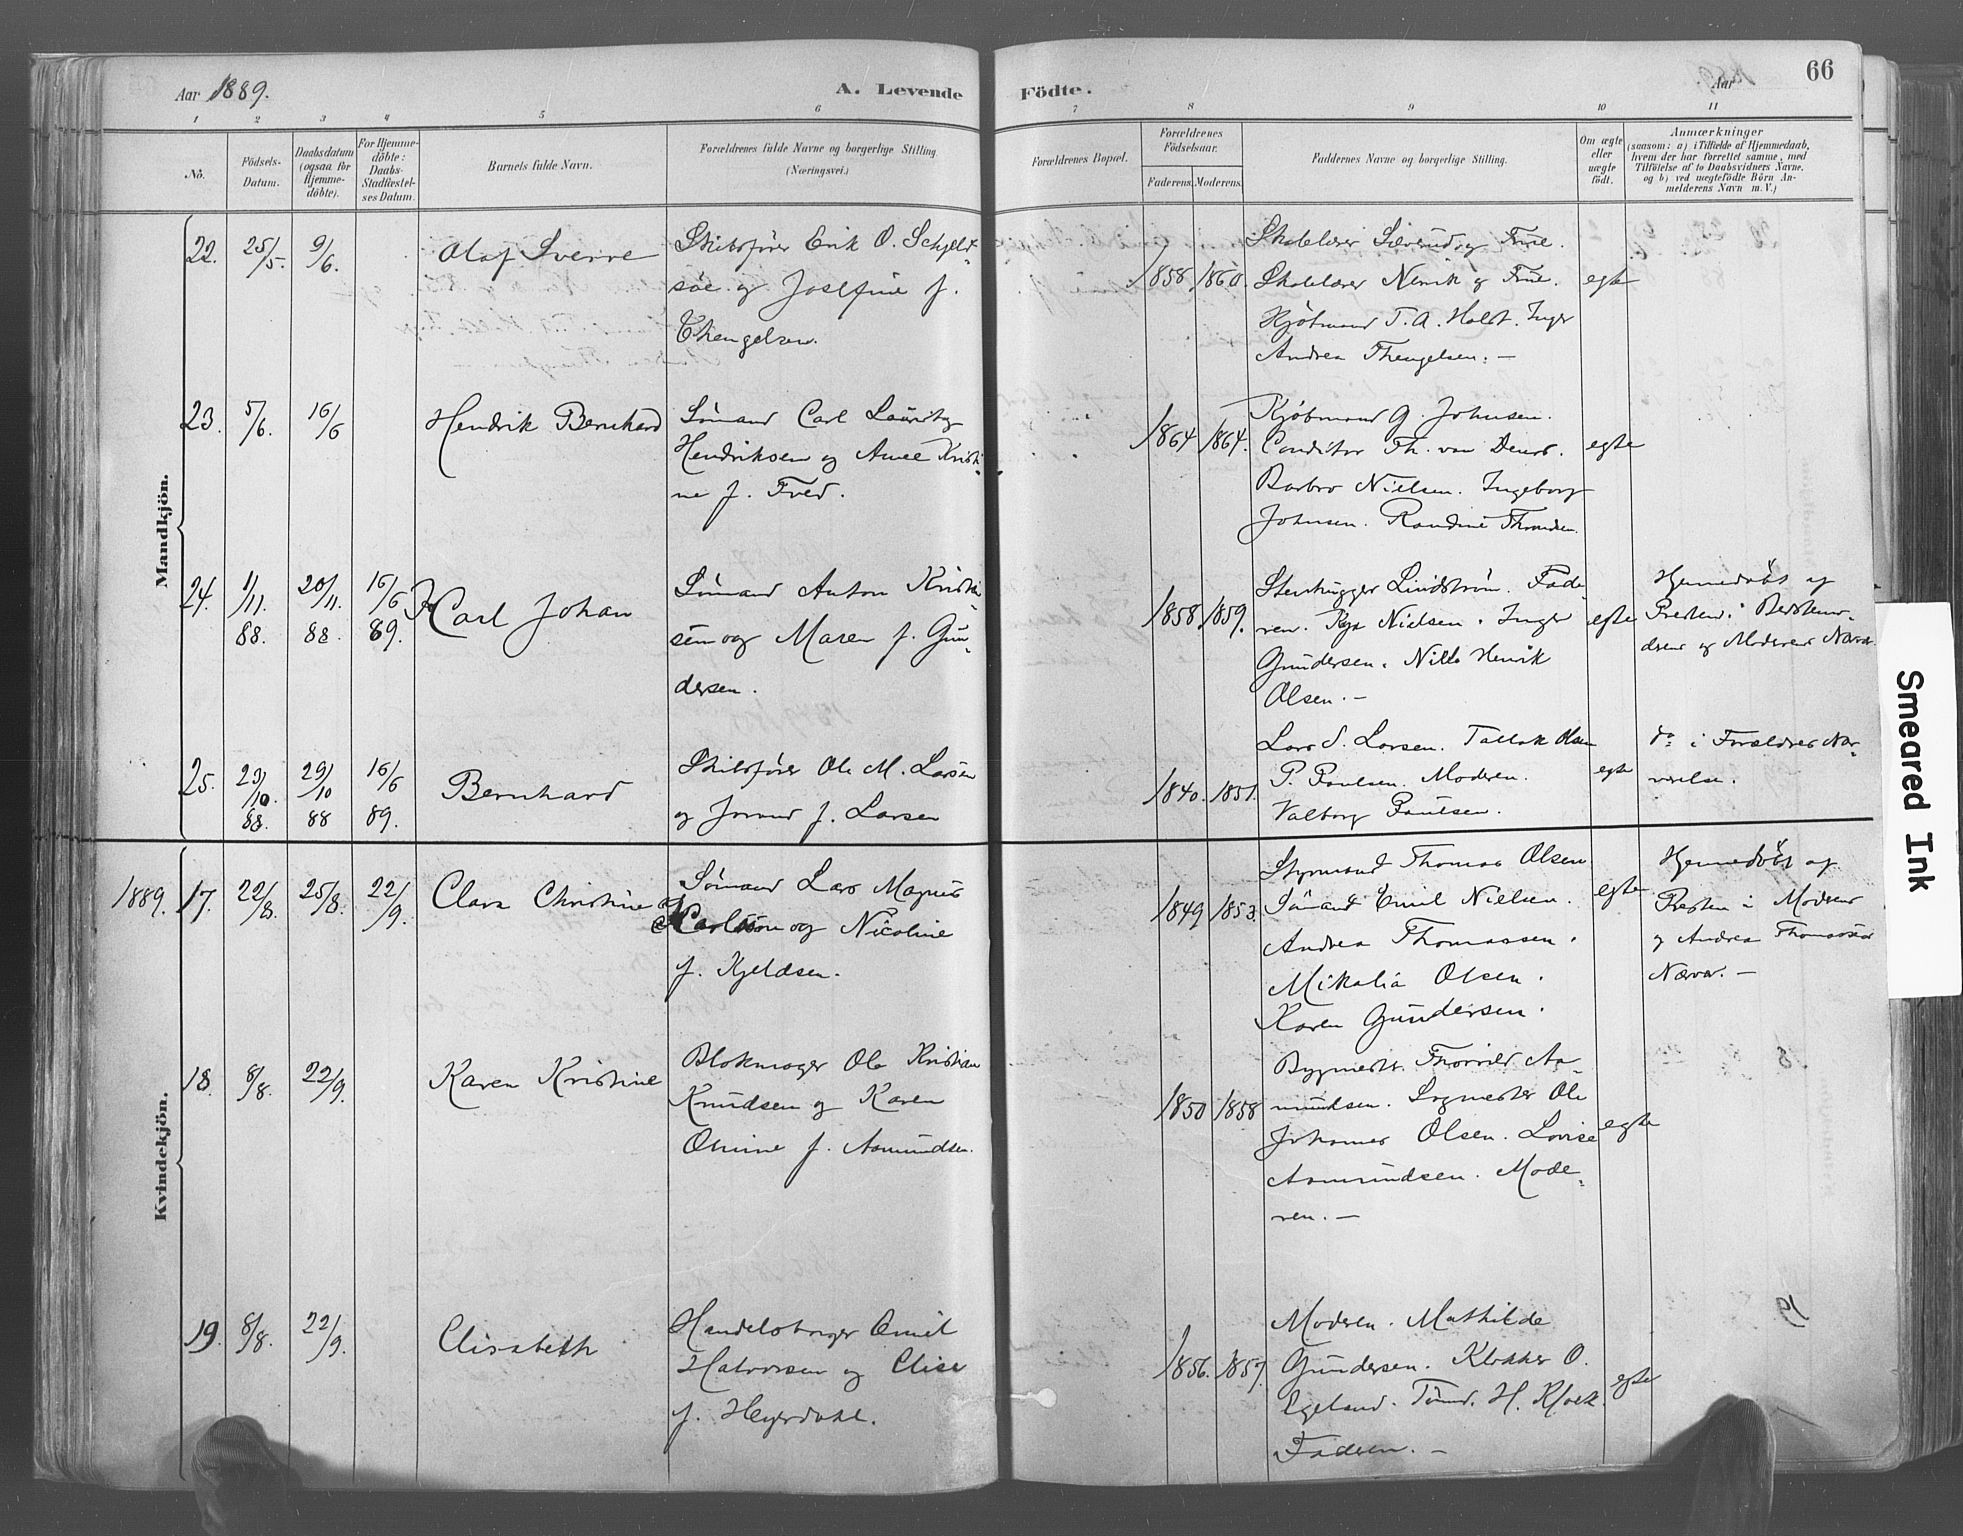 Aar 1889.
A. Levende Födte.
Aar
66
1 2 3 4 5 6 7 8 9 10 11
No.
Födsels-Datum.
Daabsdatum (ogsaa for Hjemme-döbte).
For Hjemme-döbte: Daabs-Stadfæstel-ses Datum.
Barnets fulde Navn.
Forældrenes fulde Navne og borgerlige Stilling (Næringsvei.)
Forældrenes Bopæl.
Forældrenes Födselsaar.
Faderens. Moderens.
Faddernes Navne og borgerlige Stilling.
Om ægte eller uægte födt.
Anmærkninger
(saasom: a) i Tilfælde af Hjemmedaab,
hvem der har forrettet samme, med
Tilföielse af to Daabsvidners Navne.
og b) ved uægtefödte Börn An-
melderens Navn m. V.)
Mandkjön.
22. 25/5. 9/6.
Olaf Sverre
Skibsfører Erik O. Schjelt-
søe og Josefine f.
Thengelsen.
1858. 1860.
Skolelærer Sæverud og Frue.
Skolelærer Nervik og Frue.
Kjøbmand T. A. Holst. Inger
Andrea Thengelsen. —
egte
23. 5/6. 16/6
Hendrik Bernhard
Sømand Carl Lauritz
Hendriksen og Anne Kristi-
ne f. Tved.
1864 1864.
Kjøbmand G. Johnsen.
Conditor Th. van Deurs.
Barbro Nielsen. Ingeborg
Johnsen. Randine Thomsen.
egte
24. 1/11. 88. 20/11. 88. 16/6 89.
Karl Johan
Sømand Anton Kristi-
sen og Maren f. Gun-
dersen.
1858 1859.
Stenhugger Lindstrøm. Fade-
ren. Nielsen. Inger
Gundersen. Nills Henrik
Olsen. —
egte
Hjemmedøbt af
Presten i
og Moderens Nærv.
25. 23/10. 88. 29/10 88 16/6 89.
Bernhard
Skibsfører Ole M. Larsen
og Jorand f. Larsen
1840. 1851.
Lars S. Larsen. Tallak Olsen
P. Paulsen. Moderen.
Valborg Paulsen.
egte
do i Forældres Nær-
værelse.
Kvindekjön.
1889. 17. 22/8. 25/8. 22/9.
Clara Christine
Sømand Lars Magnus
Karlson og Nicoline
f. Kjeldsen.
1849 1853.
Styrmand Thomas Olsen
Sømand Emil Nielsen.
Andrea Thomassen.
Mikalia Olsen.
Karen Gundersen.
egte
Hjemmedøbt af
Presten i Moderens
og Andrea Thomassens
Nærv. —
18. 8/8. 22/9.
Karen Kristine
Blokmager Ole Kristian
Knudsen og Karen
Osmine f. Asmundsen.
1850 1858
Bygmestr. Thorvald As-
mundsen. Sogmester Ole
Johannes Olsen. Lovise
Asmundsen. Mode-
ren. —
egte
19. 8/8. 22/9.
Elisabeth
Handelsborger Emil
Halvorsen og Elise
f. Heyerdahl.
1856. 1857.
Moderen. Mathilde
Gundersen. Klokker O.
Egeland. Tømd. H. Kloek
Faderen. —
egte
Smeared Ink